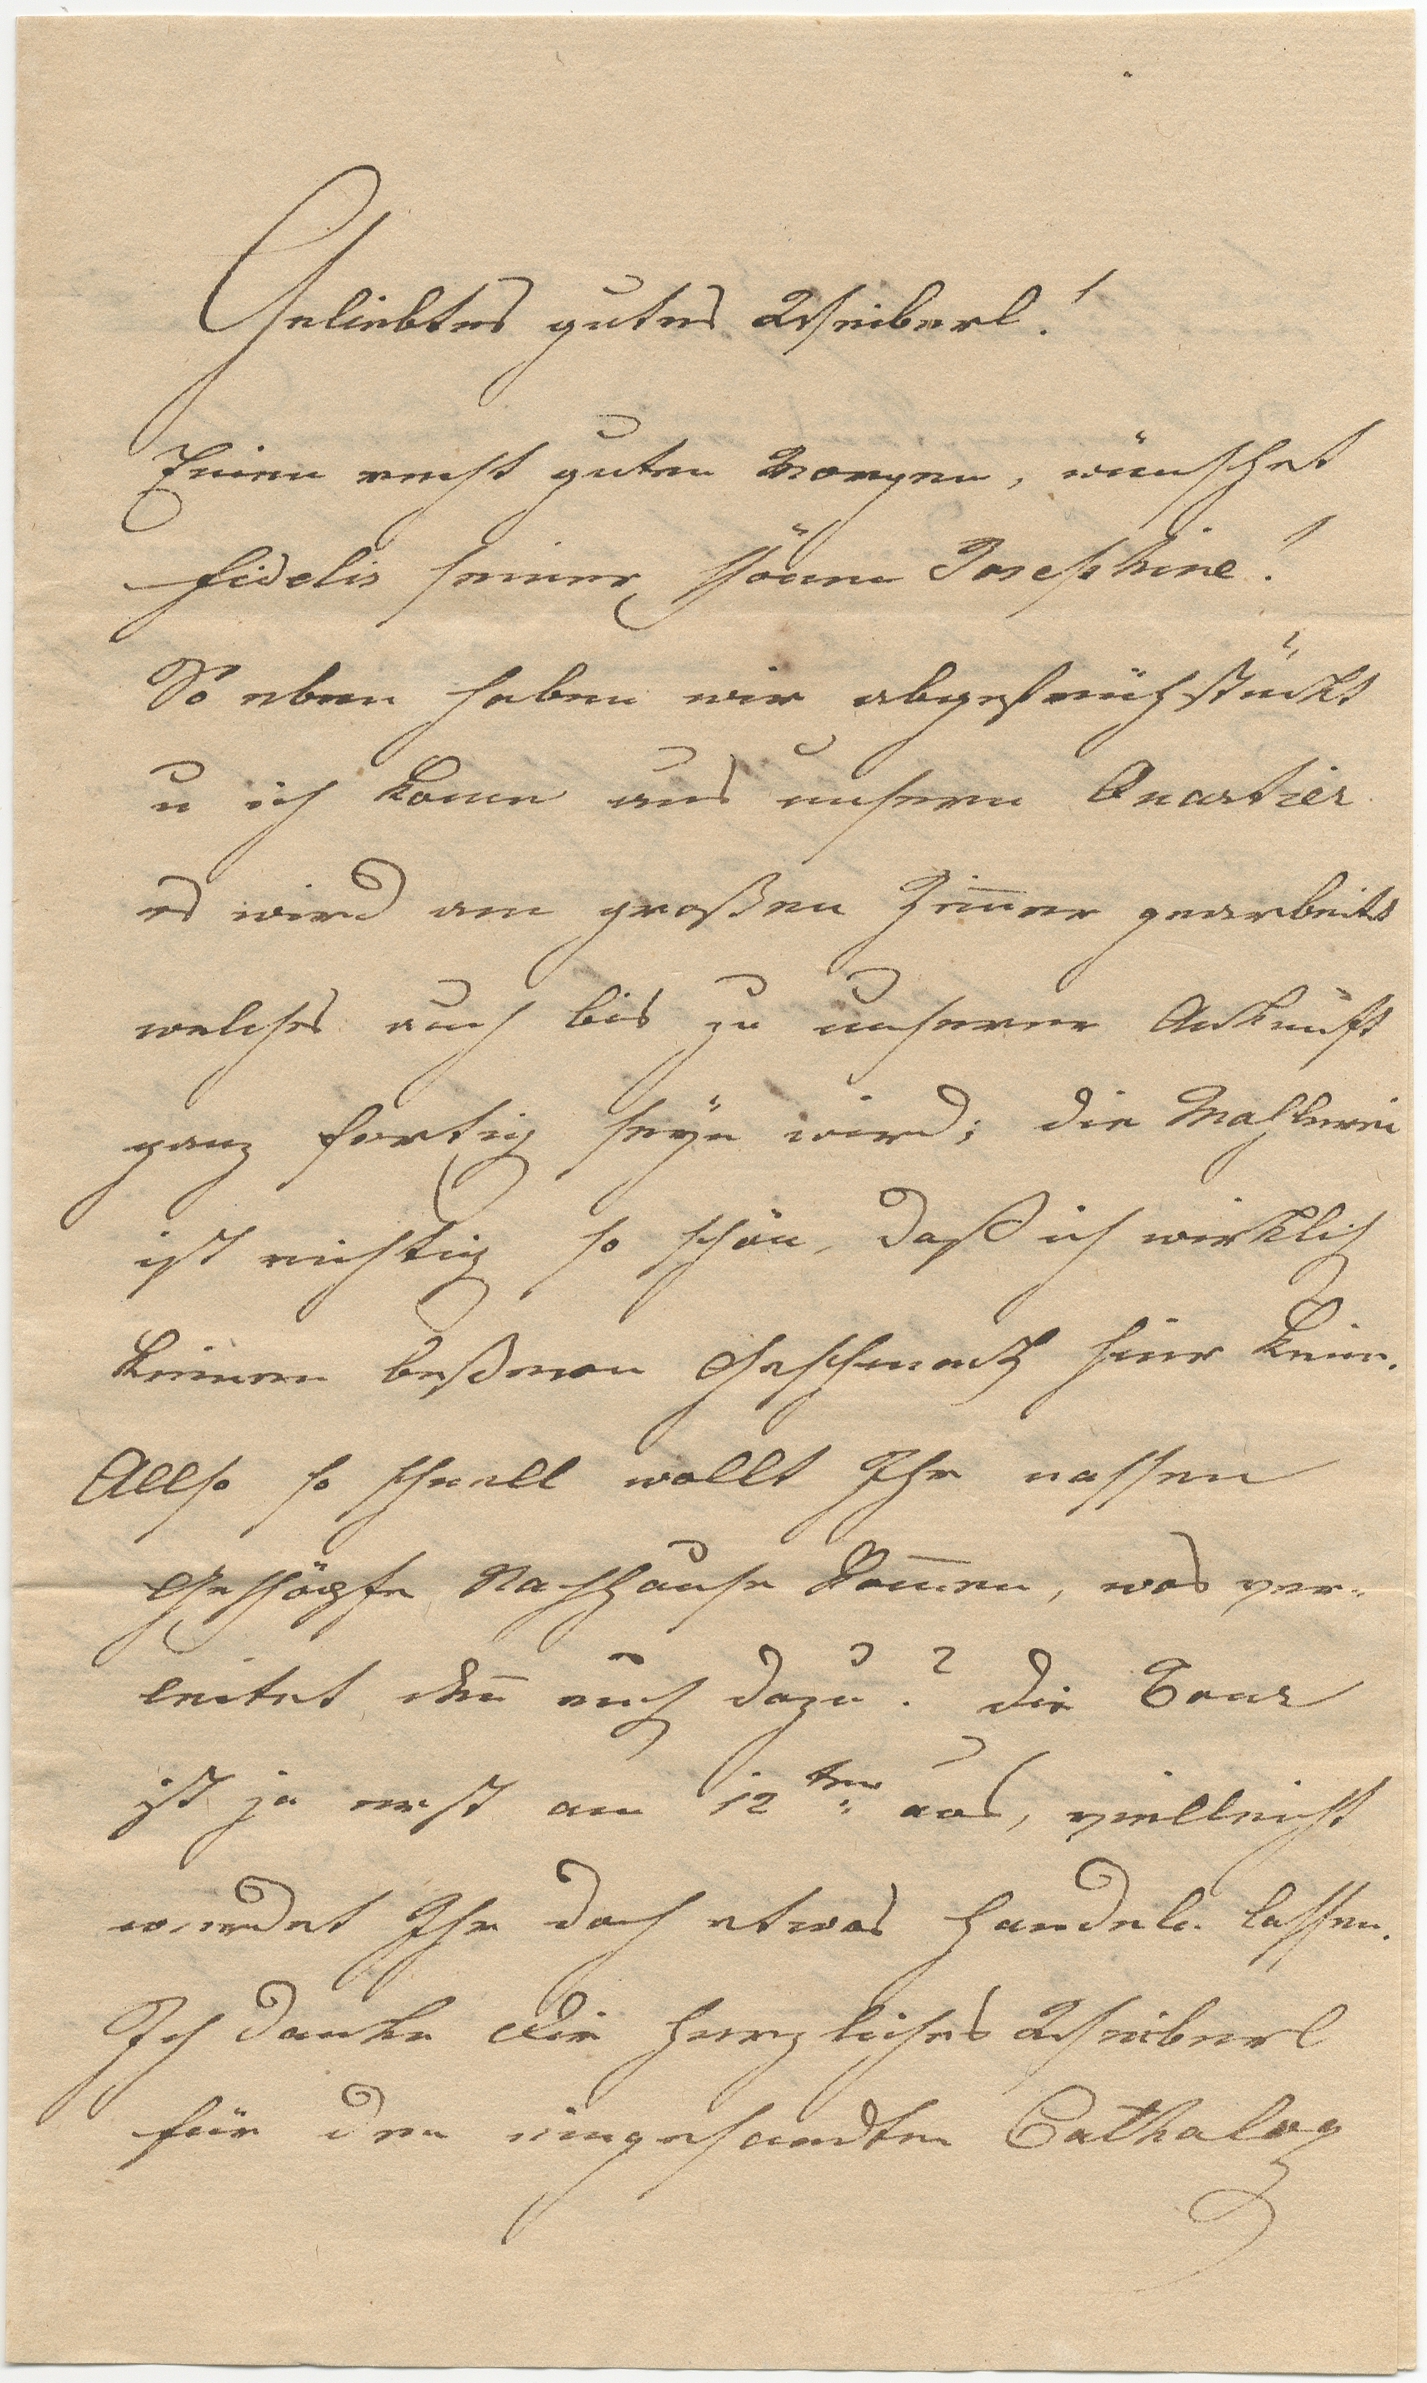 Geliebtes gutes Weiberl!
Einen recht guten Morgen, wünschet
Fidelis seiner schönen Josephine!
So eben haben wir abgefrühstückt
u ich komme aus unserm Quartier
es wird am großen Zimmer gearbeitet
welches auch bis zu unserer Ankunft
ganz fertig seyn wird; die Mahlerei
ist richtig so schön, daß ich wirklich
keinen beßeren Geschmack hier kenne.
Allso so schnell wollt Ihr nassen
Geschöpfe Nachhause kom̅en, was ver-
leitet den̅ euch dazu? die Tour
ist ja erst am 12ten: aus, vielleicht
werdet Ihr doch etwas handeln lassen.
Ich danke Dir herzliches Weiberl
für den eingesandten Cathalog